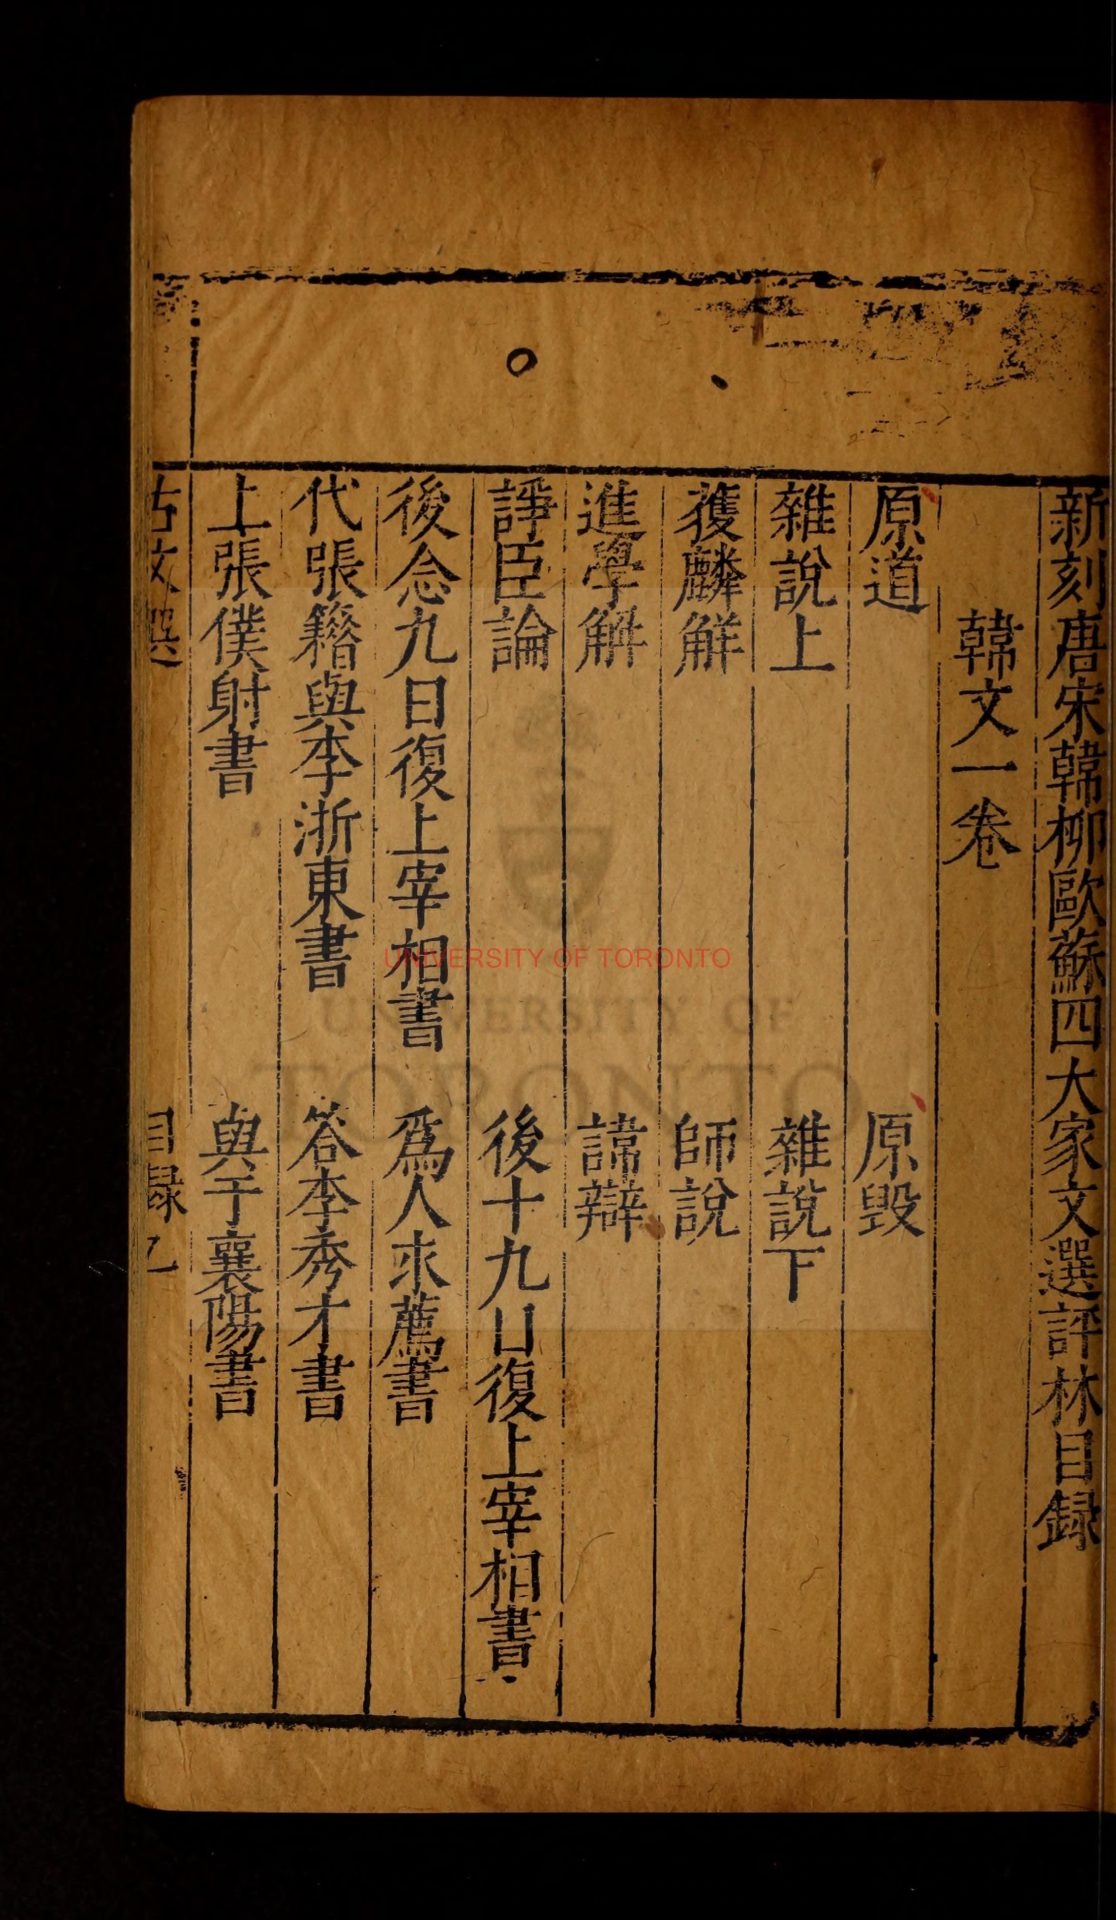 新刻唐宋韓柳歐蘇四大家文選評林目録
韓文一卷
原道 原毁
雜說上 雜說下
獲麟解 師說
進學解 諱辯
諍臣論 後十九日復上宰相書
後念九日復上宰相書 爲人求薦書
代張籍與李浙東書 答李秀才書
上張僕射書 與于襄陽書
古文選 目録 一
UNIVERSITY OF TORONTO
UNIVERSITY OF
TORONTO